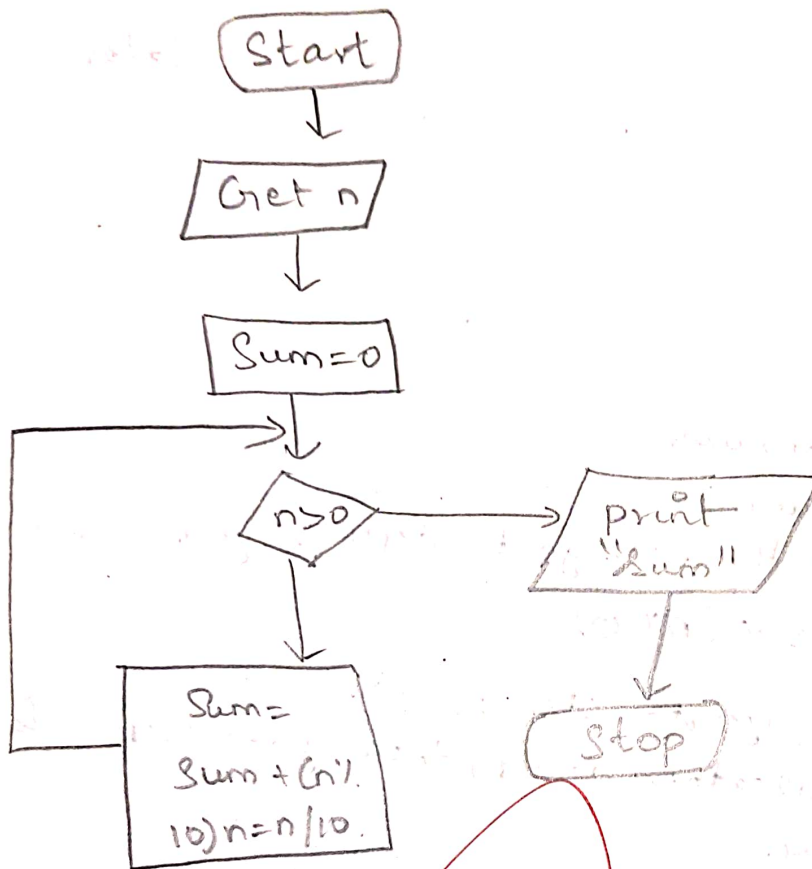 Start
Get n
Sum=0
n>0
print
"Sum"
Sum=
Sum + (n%
10)n=n/10.
Stop